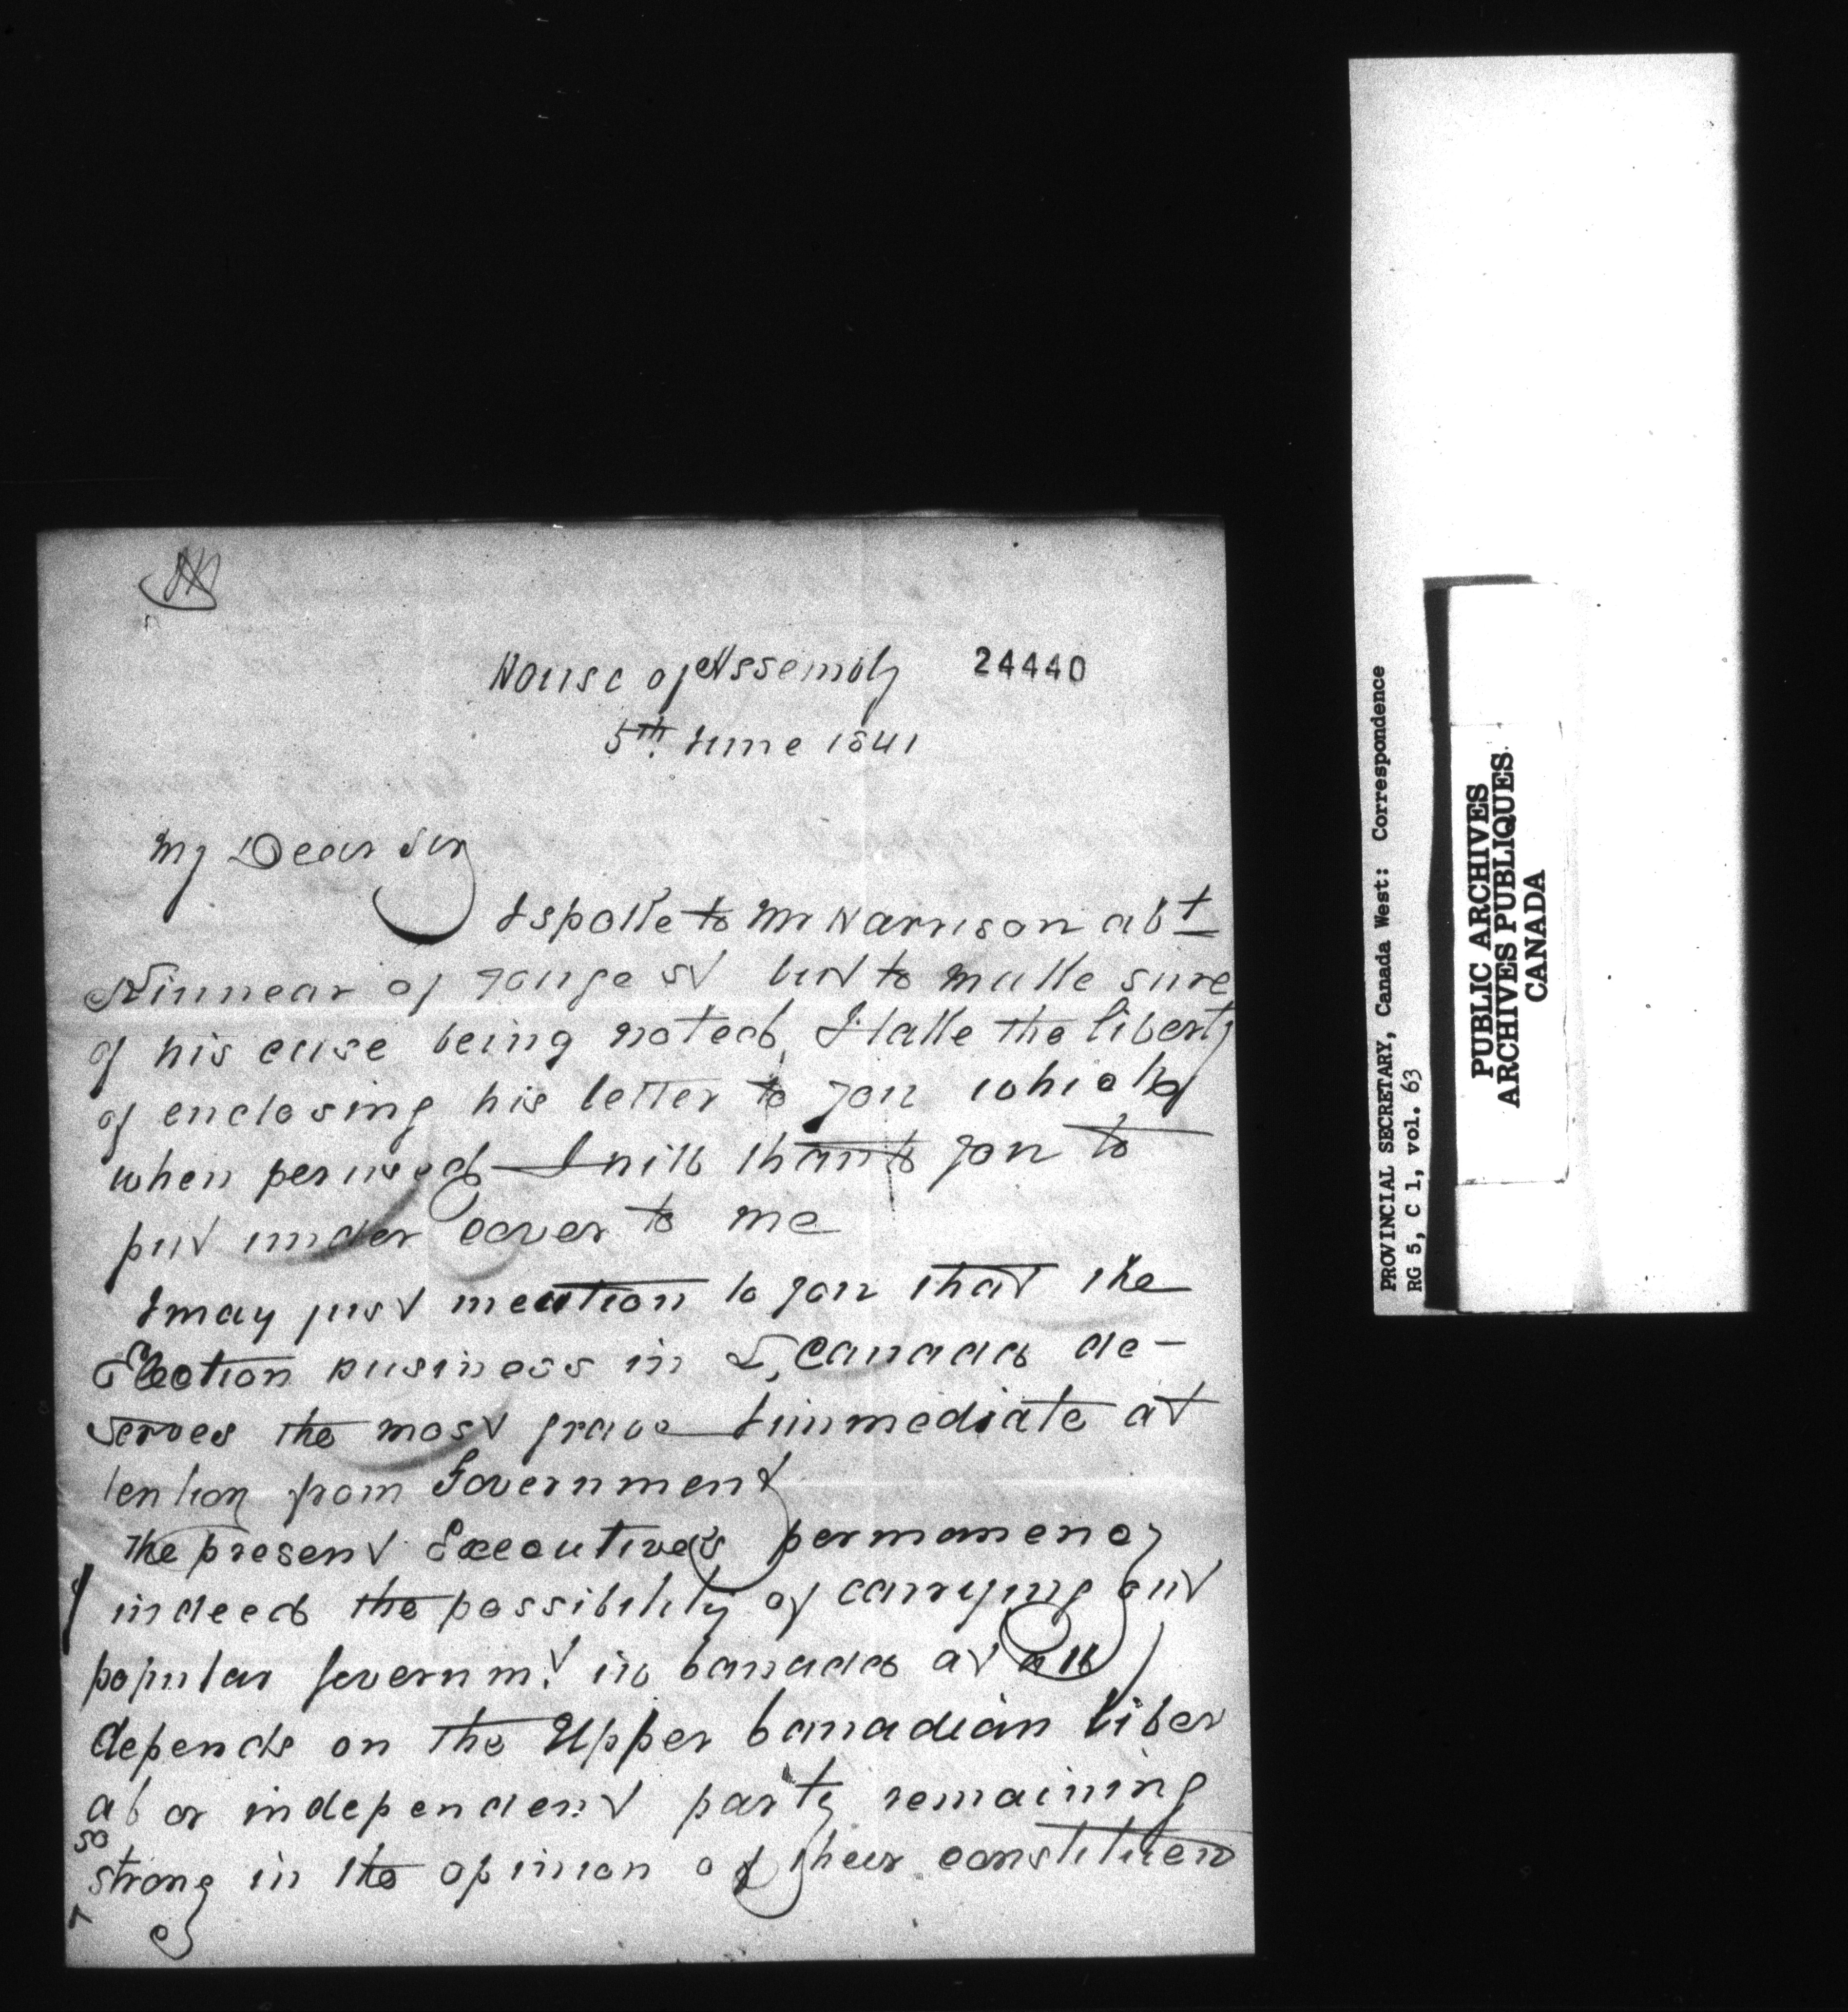 House of Assembly 24440
5th. June 1841
My Dear Sir
I spoke to Mr Harrison abt
Kinnear of Yonge St but to make sure
of his case being noted, I take the liberty
of enclosing his letter to you which
when perused I will thank you to
put under cover to me
I may just mention to you that the
Election business in L, Canada de-
serves the most grave & immediate at
tention from Government
The present Executive's permanency
indeed the possibility of carrying out
popular Governmt in Canada at all
depends on the Upper Canadian Liber
al or independent party remaining
so
strong in the opinion of their constituen
PROVINCIAL SECRETARY, Canada West: Correspondence
RG 5, C 1, vol. 63
PUBLIC ARCHIVES
ARCHIVES PUBLIQUES
CANADA